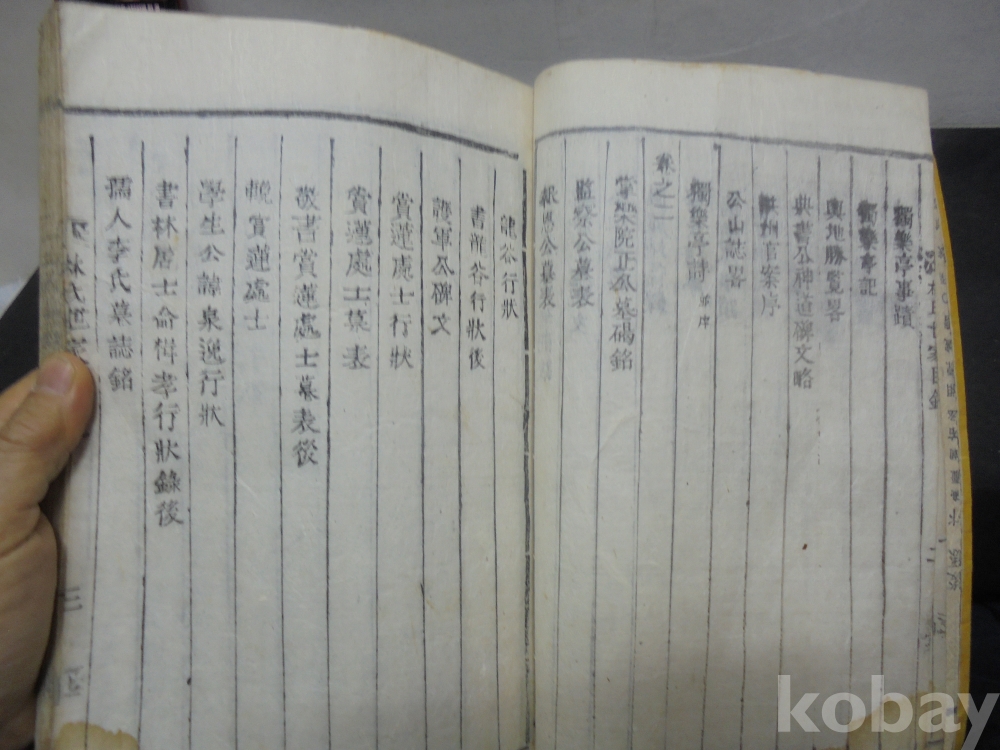 獨樂亭事蹟
獨樂亭記
輿地勝覧畧
典書公神道碑文略
洪州官案序
公山誌畧
獨樂亭詩 並序
卷之二
掌樂院正公墓碣銘
監察公墓表
公墓表
龍谷行狀
書龍谷行狀後
護軍公碑文
賞蓮處士行狀
賞蓮處士墓表
敬書賞蓮處士墓表後
輓賞蓮處士
學生公諱泉逸行狀
書林居士命稦孝行狀錄後
孺人李氏墓誌銘
林氏世家
三
kobay